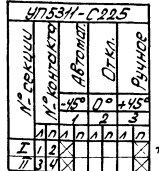 УП5311-С225
№ секции
№ контакта
Автомат.
Откл.
Ручное
-45° 0° +45°
1 2 3
Л П Л П Л П Л П
I 1 2
II 3 4